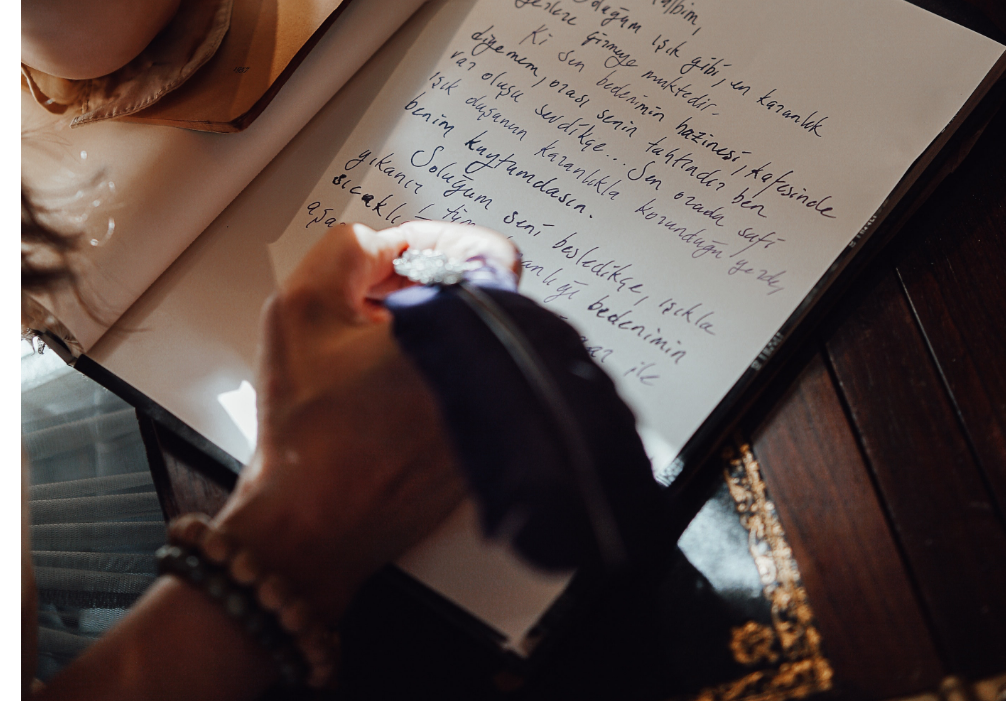 doğum ışık gibi, en karanlık
yerlere girmeye muktedir.
Ki sen bedenimin hazinesi, kafesinde
diyemem, orası senin tahtındır ben
var oluşu sevdikçe... Sen orada safi
ışık duşanın karanlıkla korunduğu yerde,
benim kuytumdasın.
Soluğum seni besledikçe, ışıkla
yıkanır bedenimin
ile